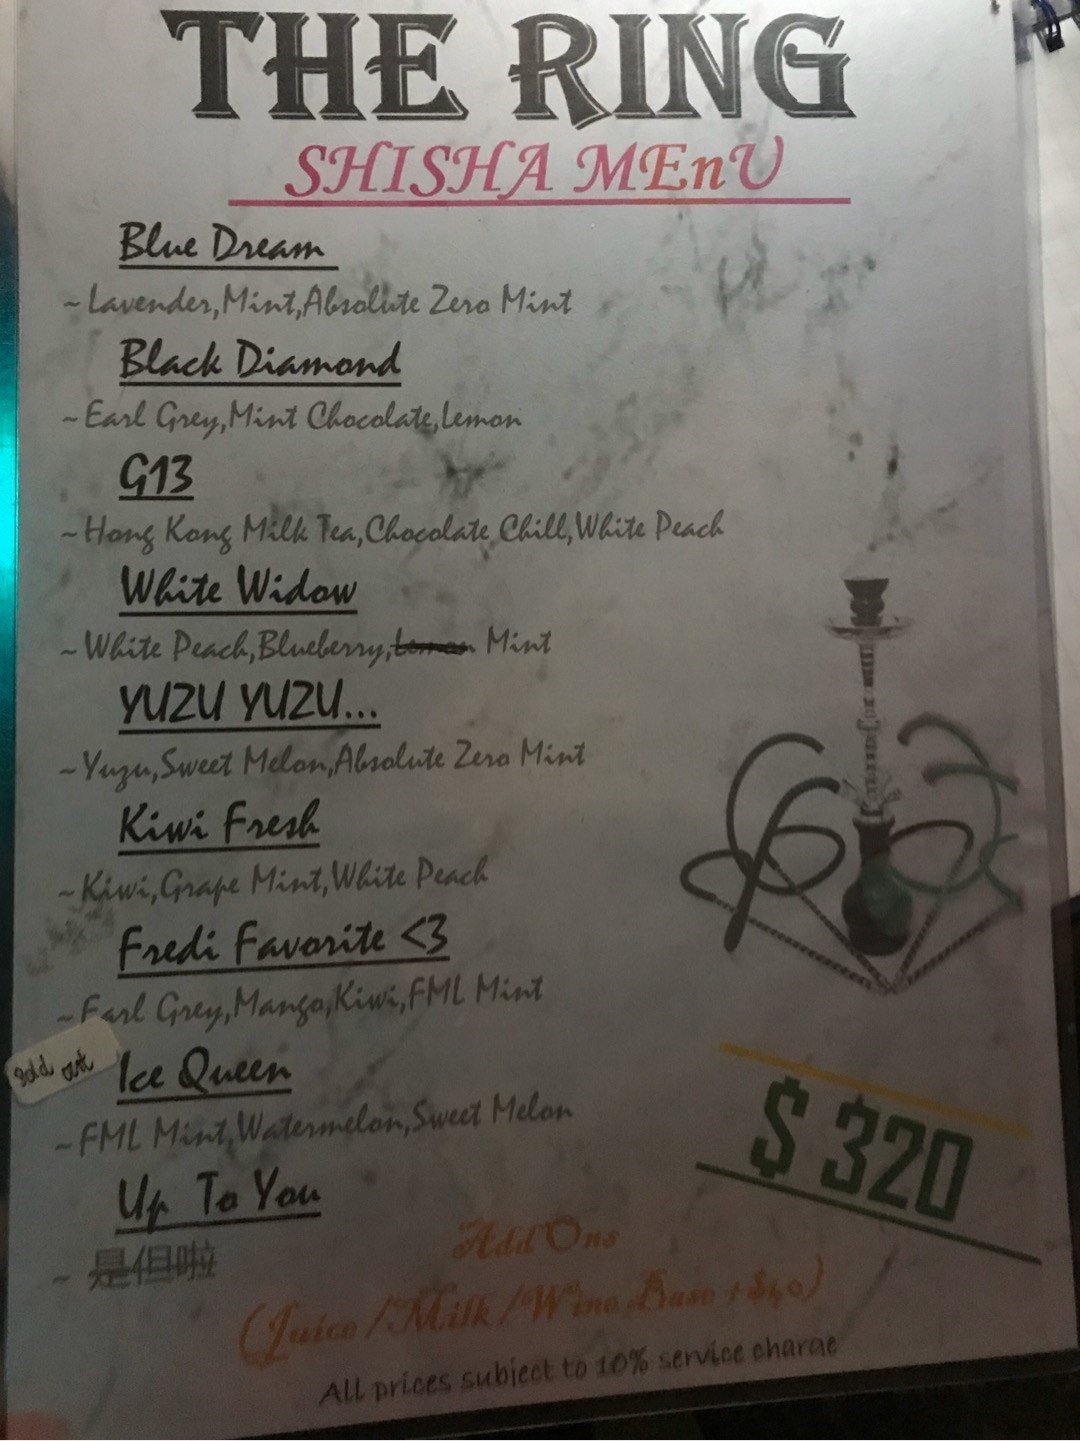 THE RING
SHISHA MEnU
Blue Dream
~Lavender,Mint,Absolute Zero Mint
Black Diamond
~Earl Grey,Mint Chocolate,Lemon
G13
~Hong Kong Milk Tea,Chocolate Chill,White Peach
White Widow
~White Peach,Blueberry,Lemon Mint
YUZU YUZU...
~Yuzu,Sweet Melon,Absolute Zero Mint
Kiwi Fresh
~Kiwi,Grape Mint,White Peach
Fredi Favorite <3
~Earl Grey,Mango,Kiwi,FML Mint
sold out
Ice Queen
~FML Mint,Watermelon,Sweet Melon
Up To You
~ 是但啦
$ 320
Add Ons
(Juice/Milk/Wine Base +$40)
All prices subject to 10% service charge